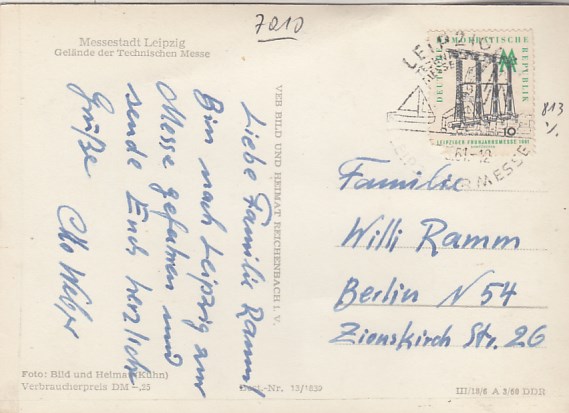 7010
Messestadt Leipzig
Gelände der Technischen Messe
Liebe Familie Ramm!
Bin nach Leipzig zur
Messe gefahren und
sende Euch herzliche
Grüße
VEB BILD UND HEIMAT REICHENBACH i. V.
DEUTSCHE DEMOKRATISCHE REPUBLIK
10
LEIPZIGER FRÜHJAHRSMESSE 1961
LEIPZIG
MESSE
813
Familie
Willi Ramm
Berlin N 54
Zionskirch Str. 26
Foto: Bild und Heimat (Kühn)
Verbraucherpreis DM -,25
Best.-Nr. 13/1839
III/18/6 A 3/60 DDR